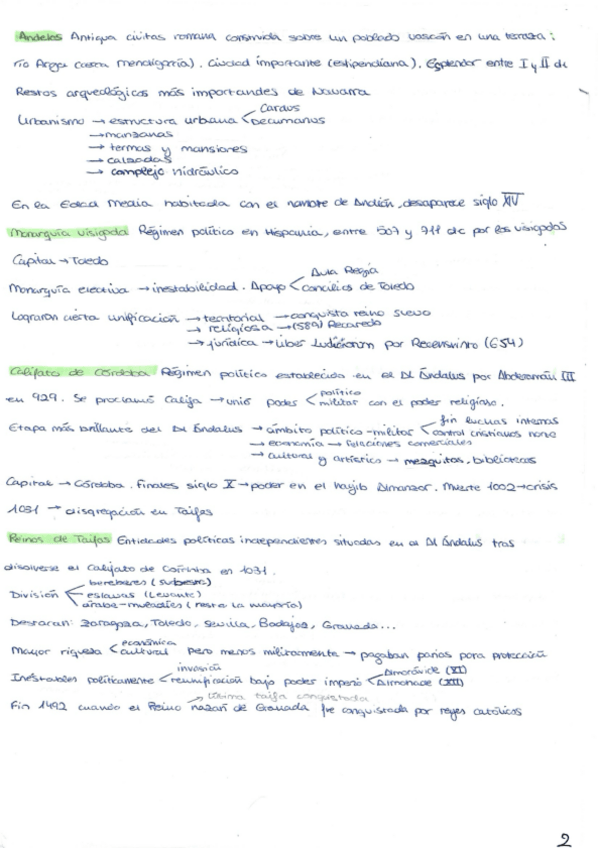 Andelos Antigua civitas romana construida sobre un poblado vascón en una terraza:
río Arga (cerca Mendigorría). Ciudad importante (estipendiaria). Esplendor entre I y II dc
Restos arqueológicos más importantes de Navarra
Cardus
Urbanismo → estructura urbana < Decumanus
→ manzanas
→ termas y mansiones
→ calzadas
→ complejo hidráulico
En la Edad Media habitada con el nombre de Andión, desaparece siglo XIV
Monarquía visigoda Régimen político en Hispania, entre 507 y 711 dc por los visigodos
Capital → Toledo
Aula Regia
Monarquía electiva → inestabilidad. Apoyo < concilios de Toledo
Lograron cierta unificación → territorial → conquista reino suevo
→ religiosa → (589) Recaredo
→ jurídica → Liber Iudiciorum por Recesvinto (654)
Califato de Córdoba Régimen político establecido en el Al Ándalus por Abderramán III
político
en 929. Se proclamó Califa → unió poder < militar con el poder religioso.
fin luchas internas
Etapa más brillante del Al Ándalus → ámbito político-militar < control cristianos norte
→ economía → relaciones comerciales
→ cultural y artístico → mezquitas, bibliotecas
Capital → Córdoba. Finales siglo X → poder en el hayib Almanzor. Muerte 1002 → crisis
1031 → disgregación en Taifas
Reinos de Taifas Entidades políticas independientes situadas en el Al Ándalus tras
disolverse el Califato de Córdoba en 1031.
bereberes (suroeste)
División < eslavas (Levante)
árabe-muladíes (resto la mayoría)
Destacan: Zaragoza, Toledo, Sevilla, Badajoz, Granada...
económica
Mayor riqueza < cultural pero menos militarmente → pagaban parias para protección
invasión Almorávide (XI)
Inestables políticamente < reunificación bajo poder imperio < Almohade (XII)
→ última taifa conquistada
Fin 1492 cuando el Reino nazarí de Granada fue conquistada por reyes católicos
2